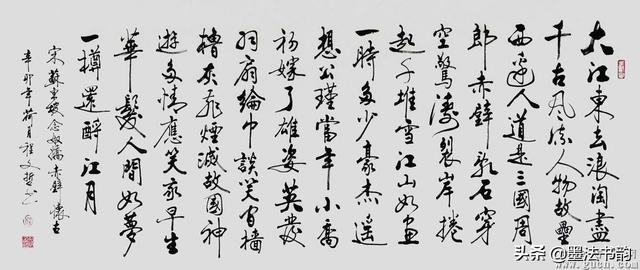 大江東去浪淘盡
千古風流人物故壘
西邊人道是三國周
郎赤壁乱石穿
空驚濤裂岸捲
起千堆雪江山如畫
一時多少豪杰遙
想公瑾當年小喬
初嫁了雄姿英發
羽扇綸巾談笑間檣
櫓灰飛煙滅故國神
遊多情應笑我早生
華髮人間如夢
一樽還酹江月
宋蘇東坡念奴嬌赤壁懷古
辛卯年荷月程文哲書
头条 @墨法书韵
www.gucn.com